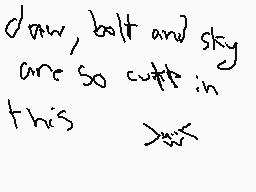 daw, bolt and sky
are so cutt in
this